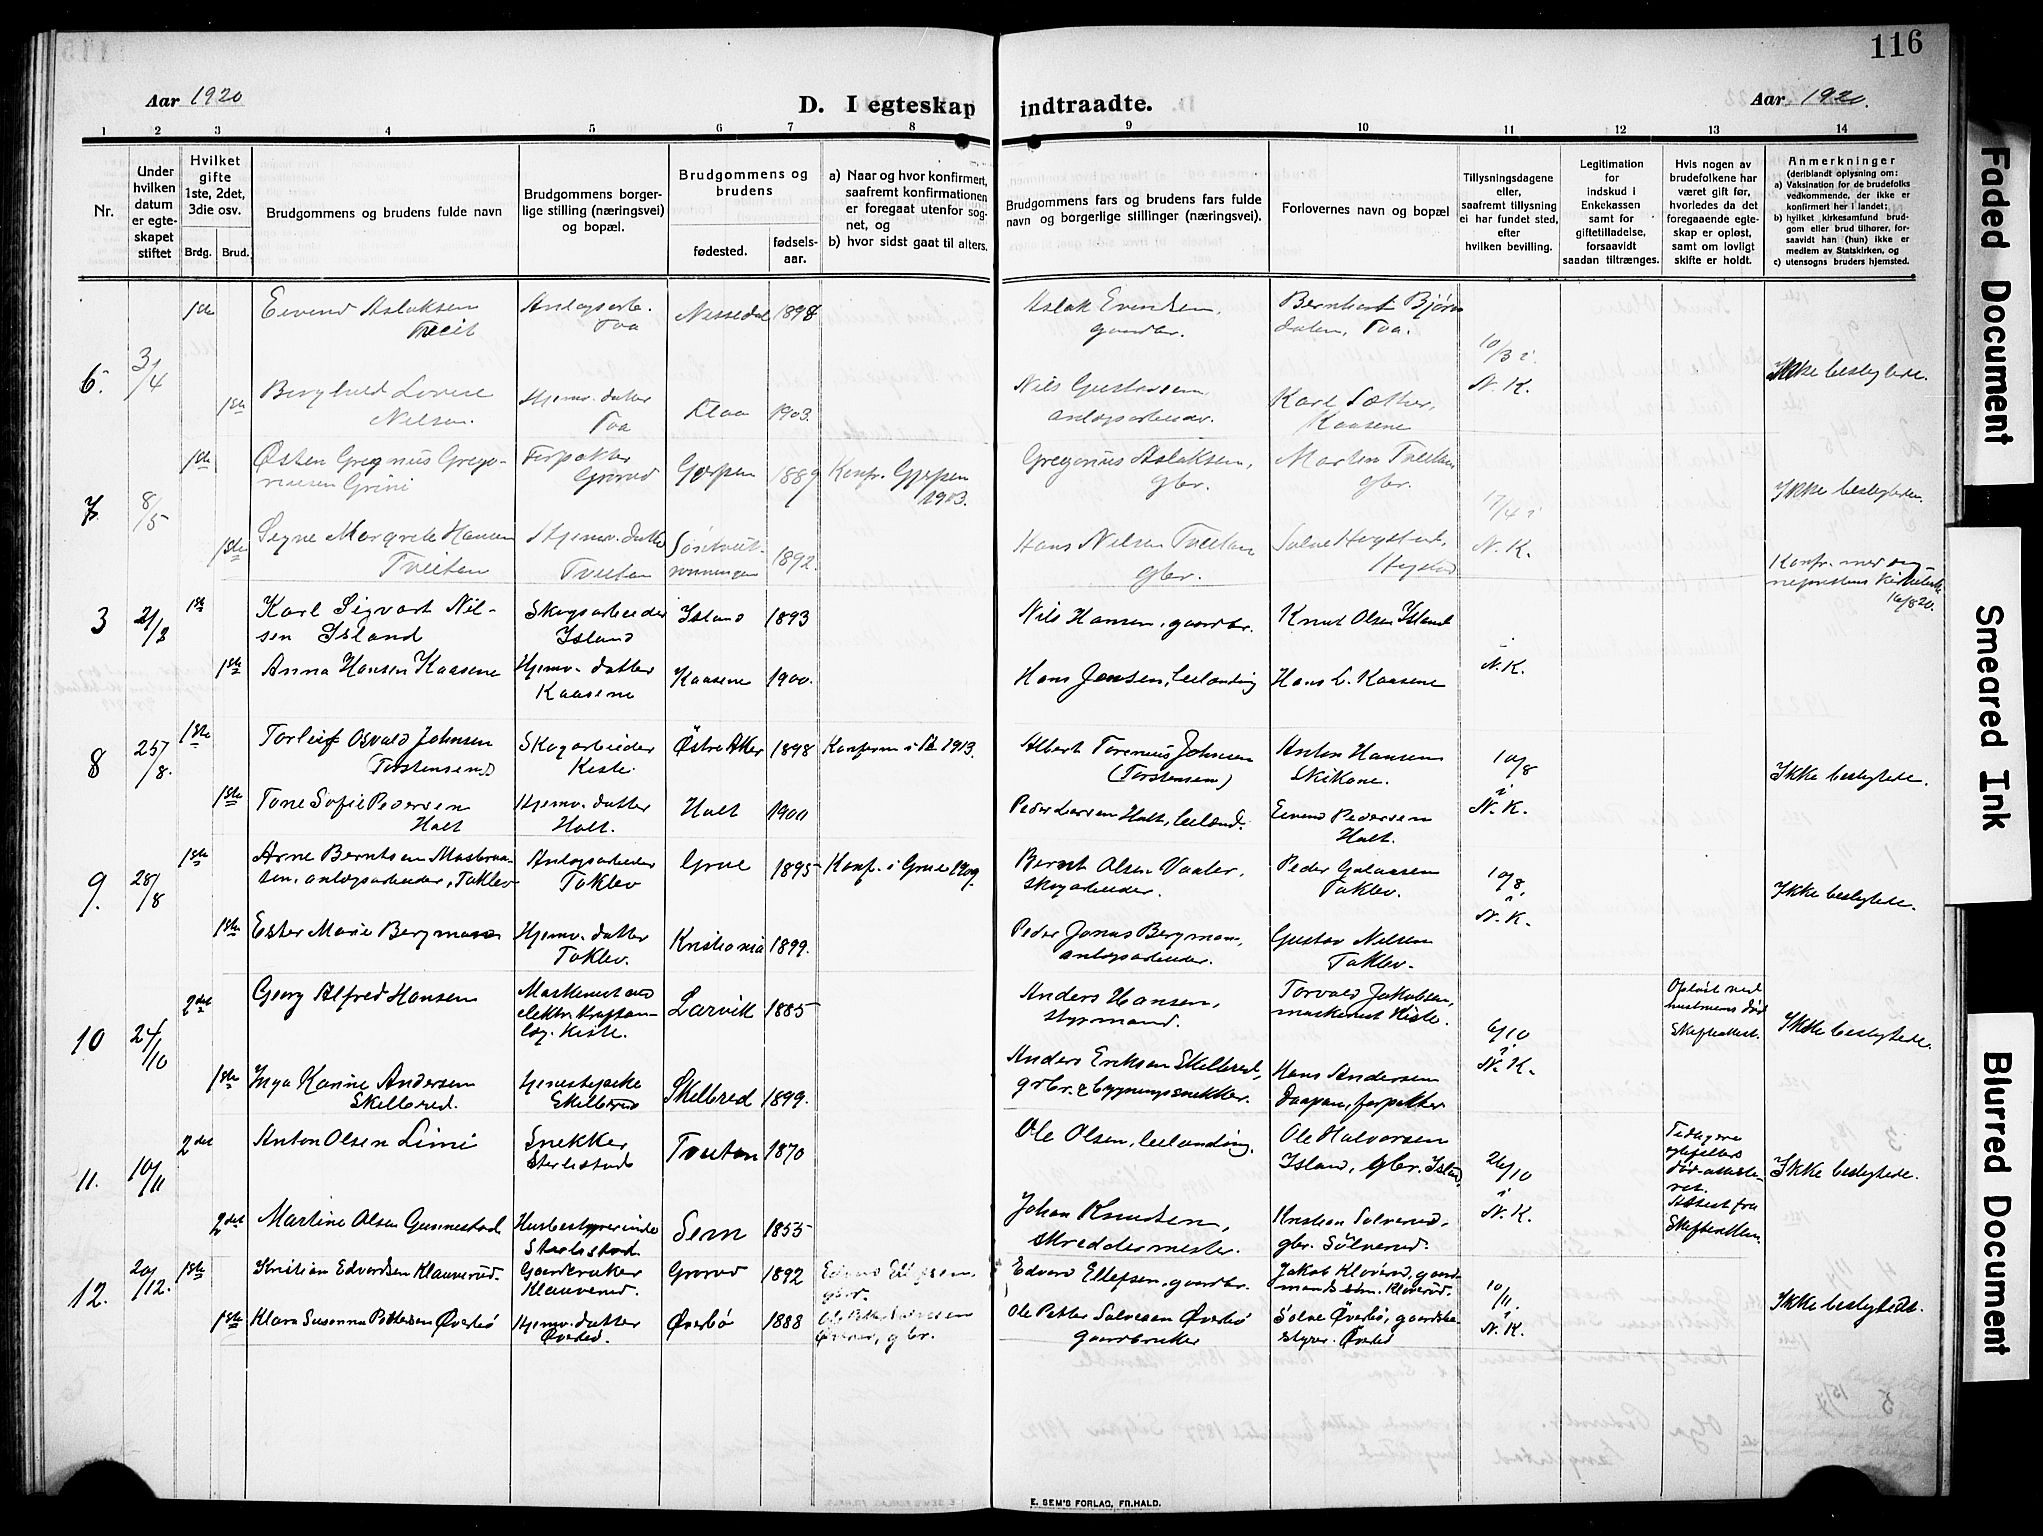 116
Aar 1920
D. I egteskap indtraadte.
Aar 1920.
1 2 3 4 5 6 7 8 9 10 11 12 13 14
Nr.
Under hvilken datum er egteskapet stiftet
Hvilket gifte 1ste, 2det, 3die osv.
Brdg. Brud.
Brudgommens og brudens fulde navn
Brudgommens borgerlige stilling (næringsvei) og bopæl.
Brudgommens og brudens
fødested.
fødselsaar.
a) Naar og hvor konfirmert, saafremt konfirmationen er foregaat utenfor sognet, og
b) hvor sidst gaat til alters.
Brudgommens fars og brudens fars fulde navn og borgerlige stillinger (næringsvei).
Forlovernes navn og bopæl
Tillysningsdagene eller, saafremt tillysning ei har fundet sted, efter hvilken bevilling.
Legitimation for indskud i Enkekassen samt for giftetilladelse, forsaavidt saadan tiltrænges.
Hvis nogen av brudefolkene har været gift før, hvorledes da det foregaaende egteskap er opløst, samt om lovligt skifte er holdt.
Anmerkninger
(deriblandt oplysning om:
a) Vaksination for de brudefolks vedkommende, der ikke er konfirmert her i landet:
b) hvilket kirkesamfund brudgom eller brud tilhører, forsaavidt han (hun) ikke er medlem av Statskirken, og
c) utensogns bruders hjemsted.
6. 3/4 1ste Eivind Aslaksen Tveit Anlægsarb. Toa Nissedal 1898 Aslak Evensen, gaardbr. Bernhart Bjørndalen, Toa. 10/3 i N. K. Ikke beslegtede.
1ste Borghild Lovise Nilsen. Hjemv. datter Toa 1903. Nils Gustavsen anlægsarbeider. Karl Sæther, Kaasene
7. 8/5 1ste Østen Gregorius Gregoriussen Grini Forpakter Grorud Gjerpen 1889 Konfr. Gjerpen 1903. Gregorius Aslaksen, gbr. Martin Tveitan gbr. 17/4 i N. K. Ikke beslegtede.
1ste Signe Margrete Hansen Tveiten Hjemv. datter Tveiten 1892. Hans Nilsen Tveitan gbr. Solve Hogstad, Hogstad
3 21/2 1ste Karl Sigvart Nilsen Island Skogsarbeider Island Island 1893 Nils Hansen, gaardbr. Knut Olsen Island i N. K.
1ste Anna Hansen Kaasene Hjemv. datter Kaasene Kaasene 1900. Hans Jensen, leilænding Hans L. Kaasene
8 25/8. 1ste Torleif Osvald Johnsen Torstensen Skogarbeider Kiste. Østre Aker 1898 Albert Torenius Johnsen (Torstensen) Anton Hansen Skikane. 10/8 i N. K. Ikke beslegtede.
1ste Tone Sofie Pedersen Holt Hjemv. datter Holt. Holt 1900 Peder Larsen Holt, leilænd. Eivind Pedersen Holt.
9. 28/8 1ste Arne Berntsen anlægsarbeider, Toklev Anlægsarbeider Toklev Grue 1895 Konf. i Grue 1909. Bernt Olsen Vaaler, skogarbeider. Peder Galaasen Toklev. 10/8, i N. K. Ikke beslegtede.
1ste Ester Marie Bergman Hjemv. datter Toklev. Kristiania 1899. Peder Jonas Bergman, anlægsarbeider. Gustav Nilsen Toklev.
10 24/10 2det Georg Alfred Hansen Maskenist ved elektr. Kraftanlæg. Kiste. Larvik 1885 Anders Hansen, styrmand. Torvald Jakobsen, maskenist Kiste. 6/10 i N. K. Opløst ved hustruens død Skifteattest. Ikke beslegtede.
1ste Inga Karine Andersen Skilbred. Tjenestepike Skilbred 1899. Anders Eriksen Skilbred, grbr. & bygningssnekker. Hans Andersen Daapan, forpakter
11. 10/11 2det Anton Olsen Limi Snekker Sterkestad Tveitan 1870 Ole Olsen, leilænding. Ole Halvorsen Island, gbr. Island. 26/10 i N. K. Tidligere egtefellers død attesteret. Attest fra Skifteretten. Ikke beslegtede.
2det Martine Olsen Gunnestad Husbestyrerinde Sterkestad. Sem 1855 Johan Knudsen, skreddermester. Kristian Solverud, gbr. Sølverud.
12. 20/12. 1ste Kristian Edvardsen Klauverud. Gaardbruker Klauverud. Grorud 1892 Edvard Ellefsen, gbr. Edvard Ellefsen, gaardbr. Jakob Kloverud, gaardmandssøn. Kloverud. 10/11. i N. K. Ikke beslegtede.
1ste Klara Susanna Pettersen Øverbø Hjemv. datter Øverbø. Øverbø 1888 Ole Petter Solvesen Øverbø, gbr. Ole Petter Solvesen Øverbø gaardbruker Solve Øverbø, gaardsbestyrer. Øverbø
E. SEM'S FORLAG, FR.HALD.
Faded Document
Smeared Ink
Blurred Document